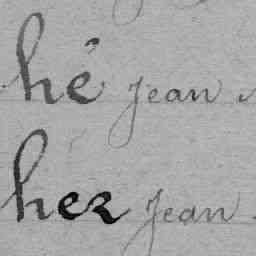 hé Jean
her Jean